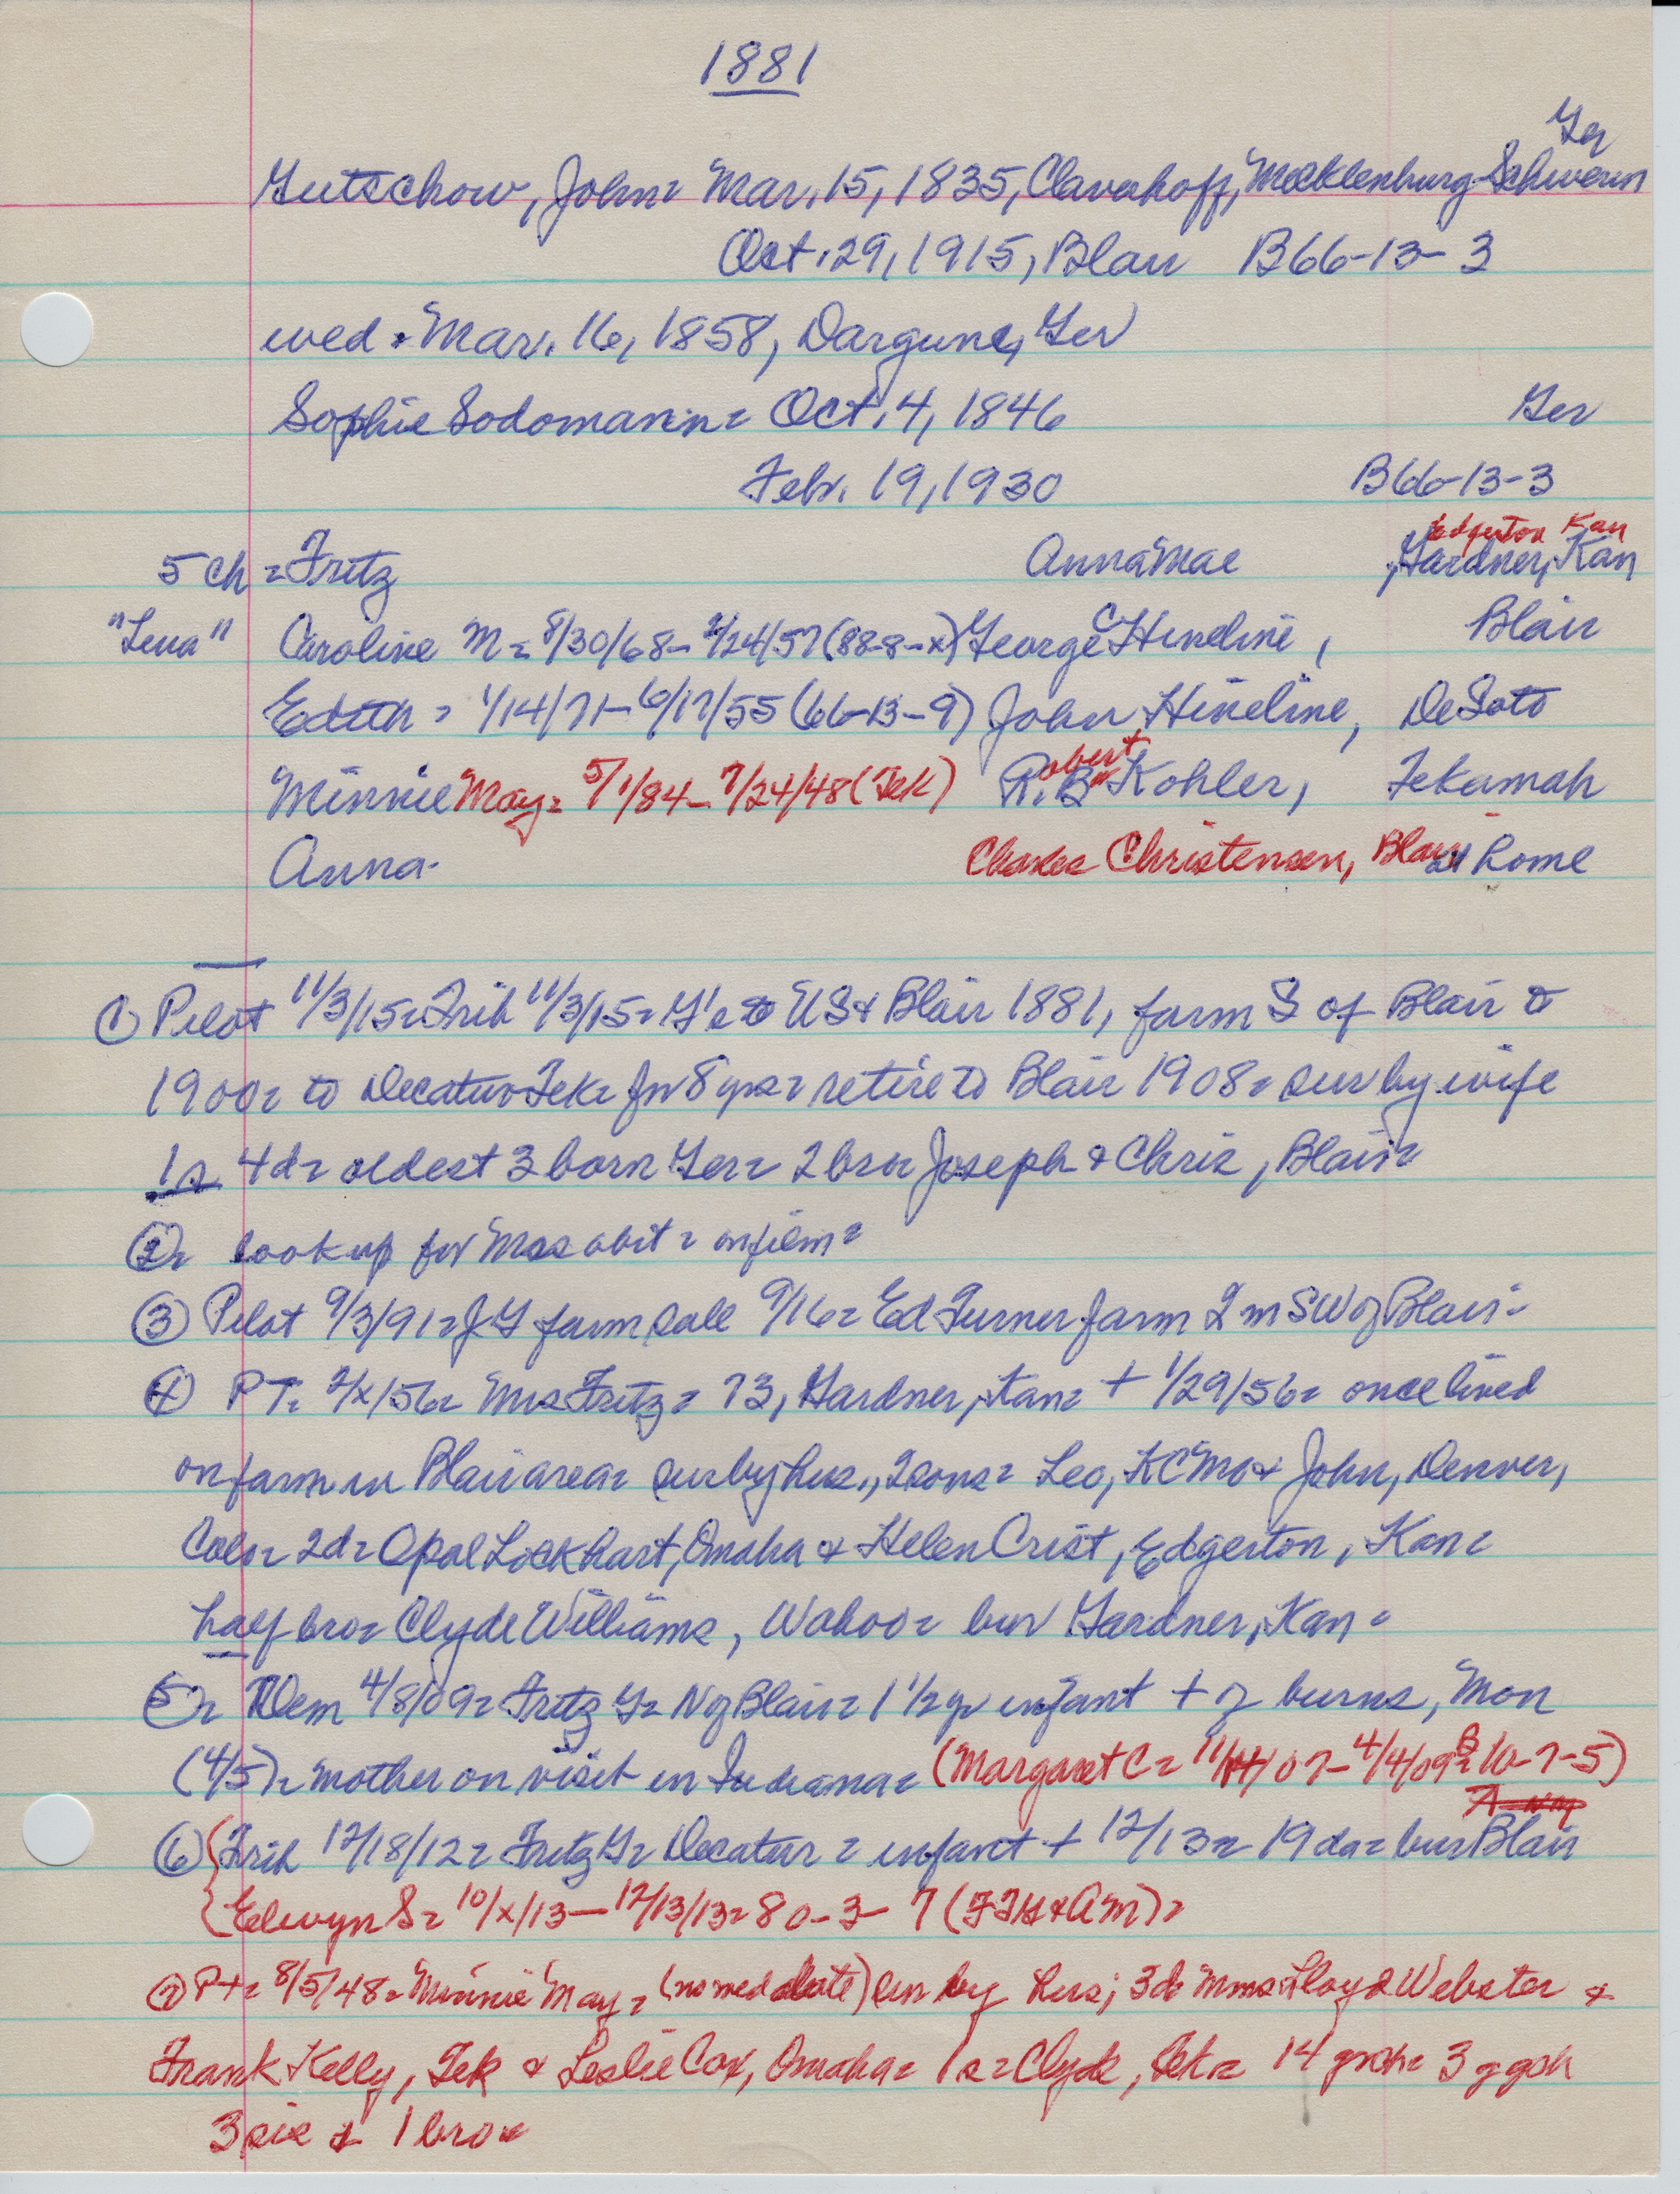 1881
Ger
Gutschow, John = Mar. 15, 1835, Claverhoff, Mecklenburg-Schwerin
Oct. 29, 1915, Blair B66-13-3
wed = Mar. 16, 1858, Dargune, Ger
Sophie Sodomann = Oct. 4, 1846 Ger
Febr. 19, 1930 B66-13-3
Edgerton Kan
5 ch = Fritz Anna Mae , Gardner, Kan
"Lena" Caroline M = 8/30/68 - 2/24/57 (88-8-x) George C Hineline , Blair
Edith = 1/14/71 - 6/17/55 (66-13-9) John Hineline, DeSoto
Minnie May = 5/1/84 - 7/24/48 (Tek) Robert B Kohler, Tekamah
Anna - Charles Christensen, Blair at home
① Pilot 11/3/15 = Trib 11/3/15 = G's to US & Blair 1881, farm S of Blair to
1900 = to Decatur-Tek = for 8 yrs = retire to Blair 1908 = sur by wife
1s 4d = oldest 3 born Ger = 2 bro = Joseph & Chris, Blair =
② = look up for Mrs obit = on film =
③ Pilot 9/3/91 = J G farm sale 9/16 = Ed Turner farm 2 m SW of Blair -
④ PT = 2/x/56 = Mrs Fritz = 73, Gardner, Kan = + 1/29/56 = once lived
on farm in Blair area = sur by hus., 2 sons = Leo, KC Mo & John, Denver,
Colo = 2d = Opal Lockhart, Omaha & Helen Crist, Edgerton, Kan =
half bro = Clyde Williams, Wahoo = bur Gardner, Kan =
⑤ = Dem 4/8/09 = Fritz G = N of Blair = 1 1/2 yr infant + of burns, Mon
(4/5) = mother on visit in Indiana = (Margaret C = 11/14/07 - 4/4/09 = B 10-7-5)
⑥ { Trib 12/18/12 = Fritz G = Decatur = infant + 12/13 = 19 da = bur Blair
{ Elwyn S = 10/x/13 - 12/13/13 = 80-3-7 (FTG & AM) =
⑦ Pt = 8/5/48 = Minnie May = (no wed date) sur by hus; 3d = Mmes Lloyd Webster &
Frank Kelly, Tek & Leslie Cox, Omaha = 1s = Clyde, Tek = 14 grch = 3 ggch
3 sis & 1 bro =